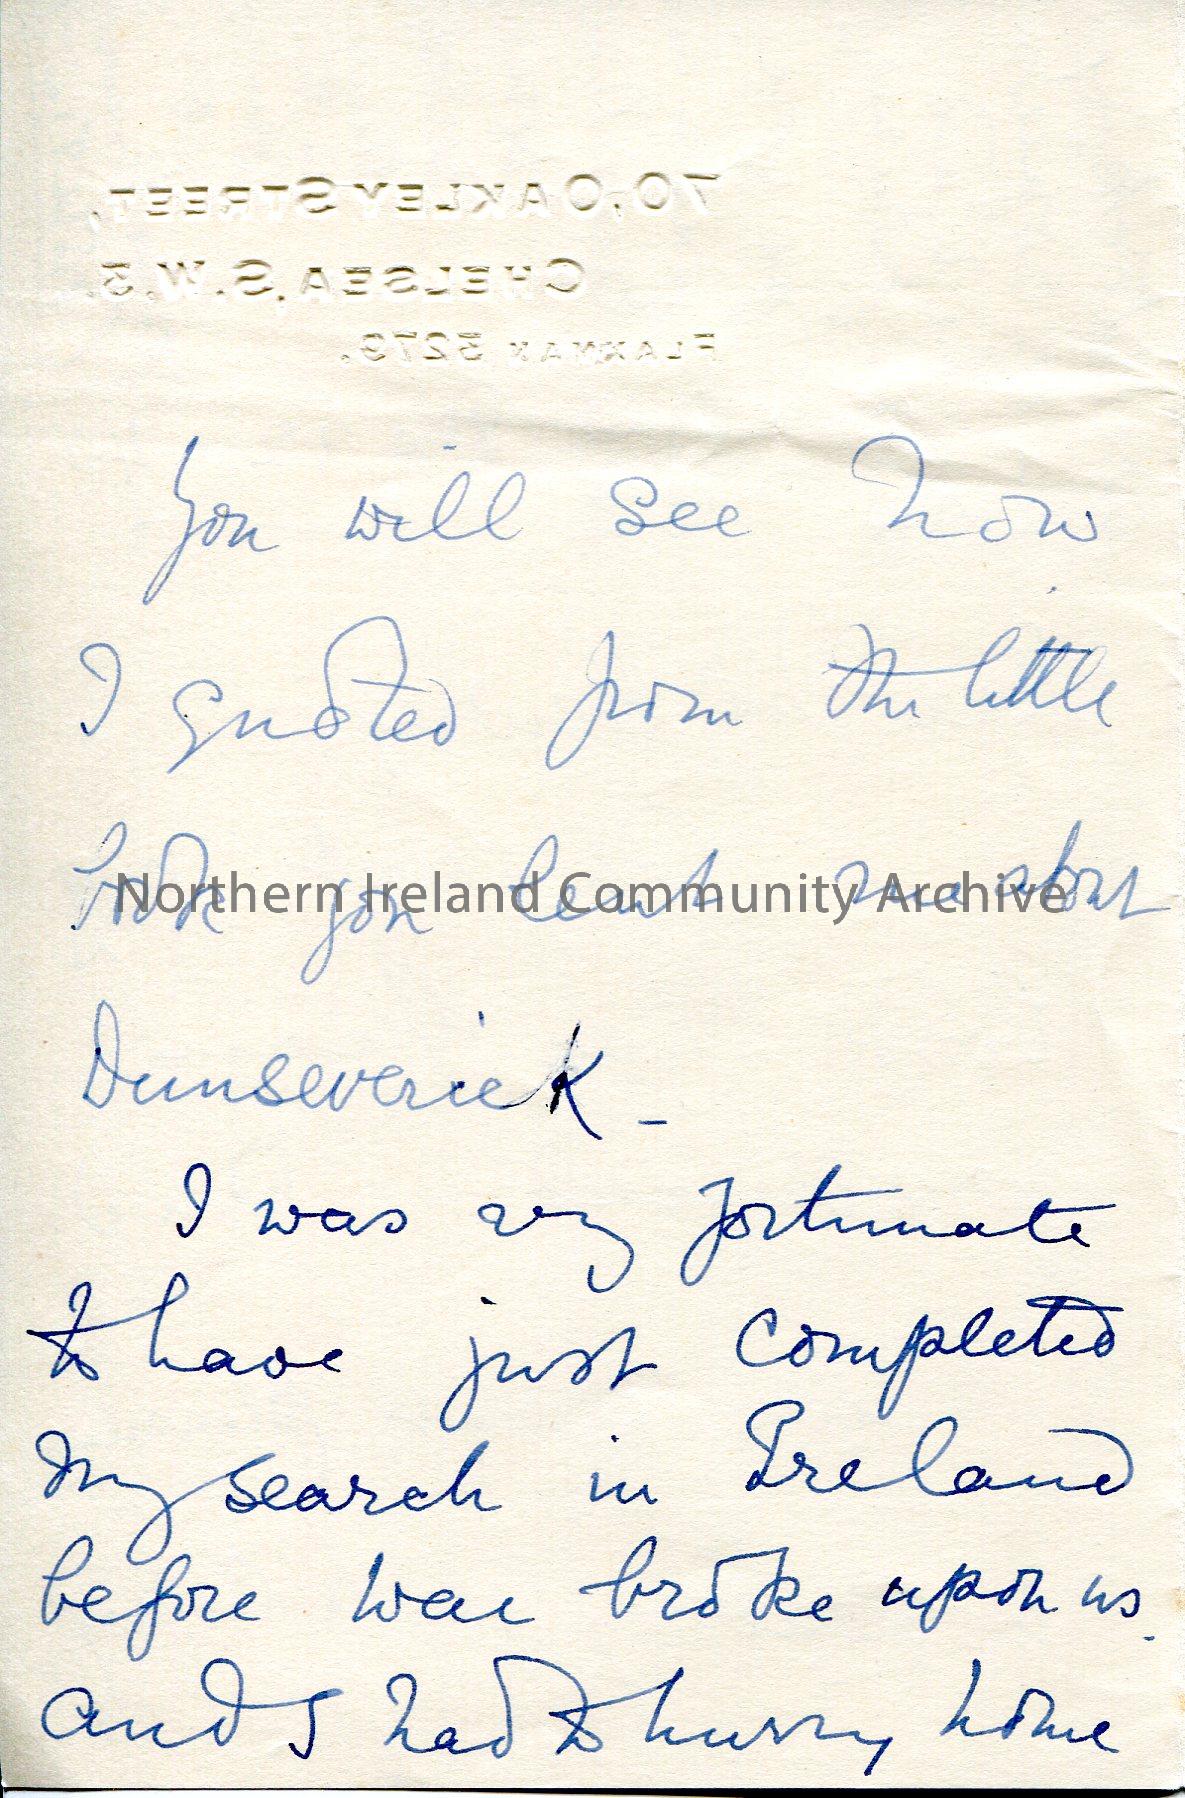 70, OAKLEY STREET,
CHELSEA, S.W.3.
FLAXMAN 3279.
You will see how
I quoted from the little
book you lent me about
Dunseverick –
I was very fortunate
to have just completed
my search in Ireland
before war broke upon us.
and I had to hurry home
Northern Ireland Community Archive